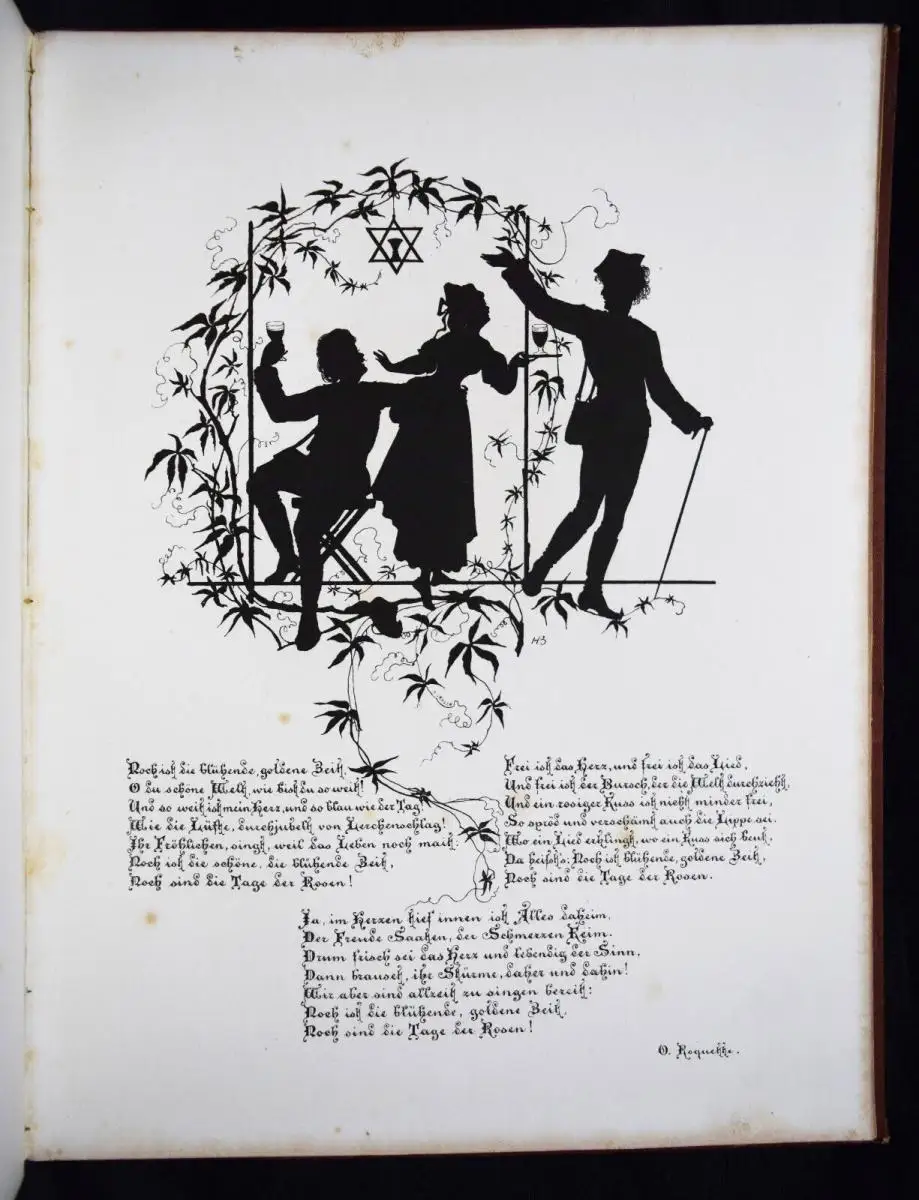 HB
Noch ist die blühende, goldene Zeit,
O du schöne Welt, wie bist du so weit!
Und so weit ist mein Herz, und so blau wie der Tag,
Wie die Lüfte, durchjubelt von Lerchenschlag!
Ihr Fröhlichen, singt, weil das Leben noch mait:
Noch ist die schöne, die blühende Zeit,
Noch sind die Tage der Rosen!
Frei ist das Herz, und frei ist das Lied,
Und frei ist der Bursch, der die Welt durchzieht,
Und ein rosiger Kuss ist nicht minder frei,
So spröd und verschämt auch die Lippe sei.
Wo ein Lied erklingt, wo ein Kuss sich beut,
Da heisst's: Noch ist blühende, goldene Zeit,
Noch sind die Tage der Rosen.
Ja, im Herzen tief innen ist Alles daheim,
Der Freude Saaten, der Schmerzen Keim.
Drum frisch sei das Herz und lebendig der Sinn,
Dann brauset, ihr Stürme, daher und dahin!
Wir aber sind allzeit zu singen bereit:
Noch ist die blühende, goldene Zeit,
Noch sind die Tage der Rosen!
O. Roquette.